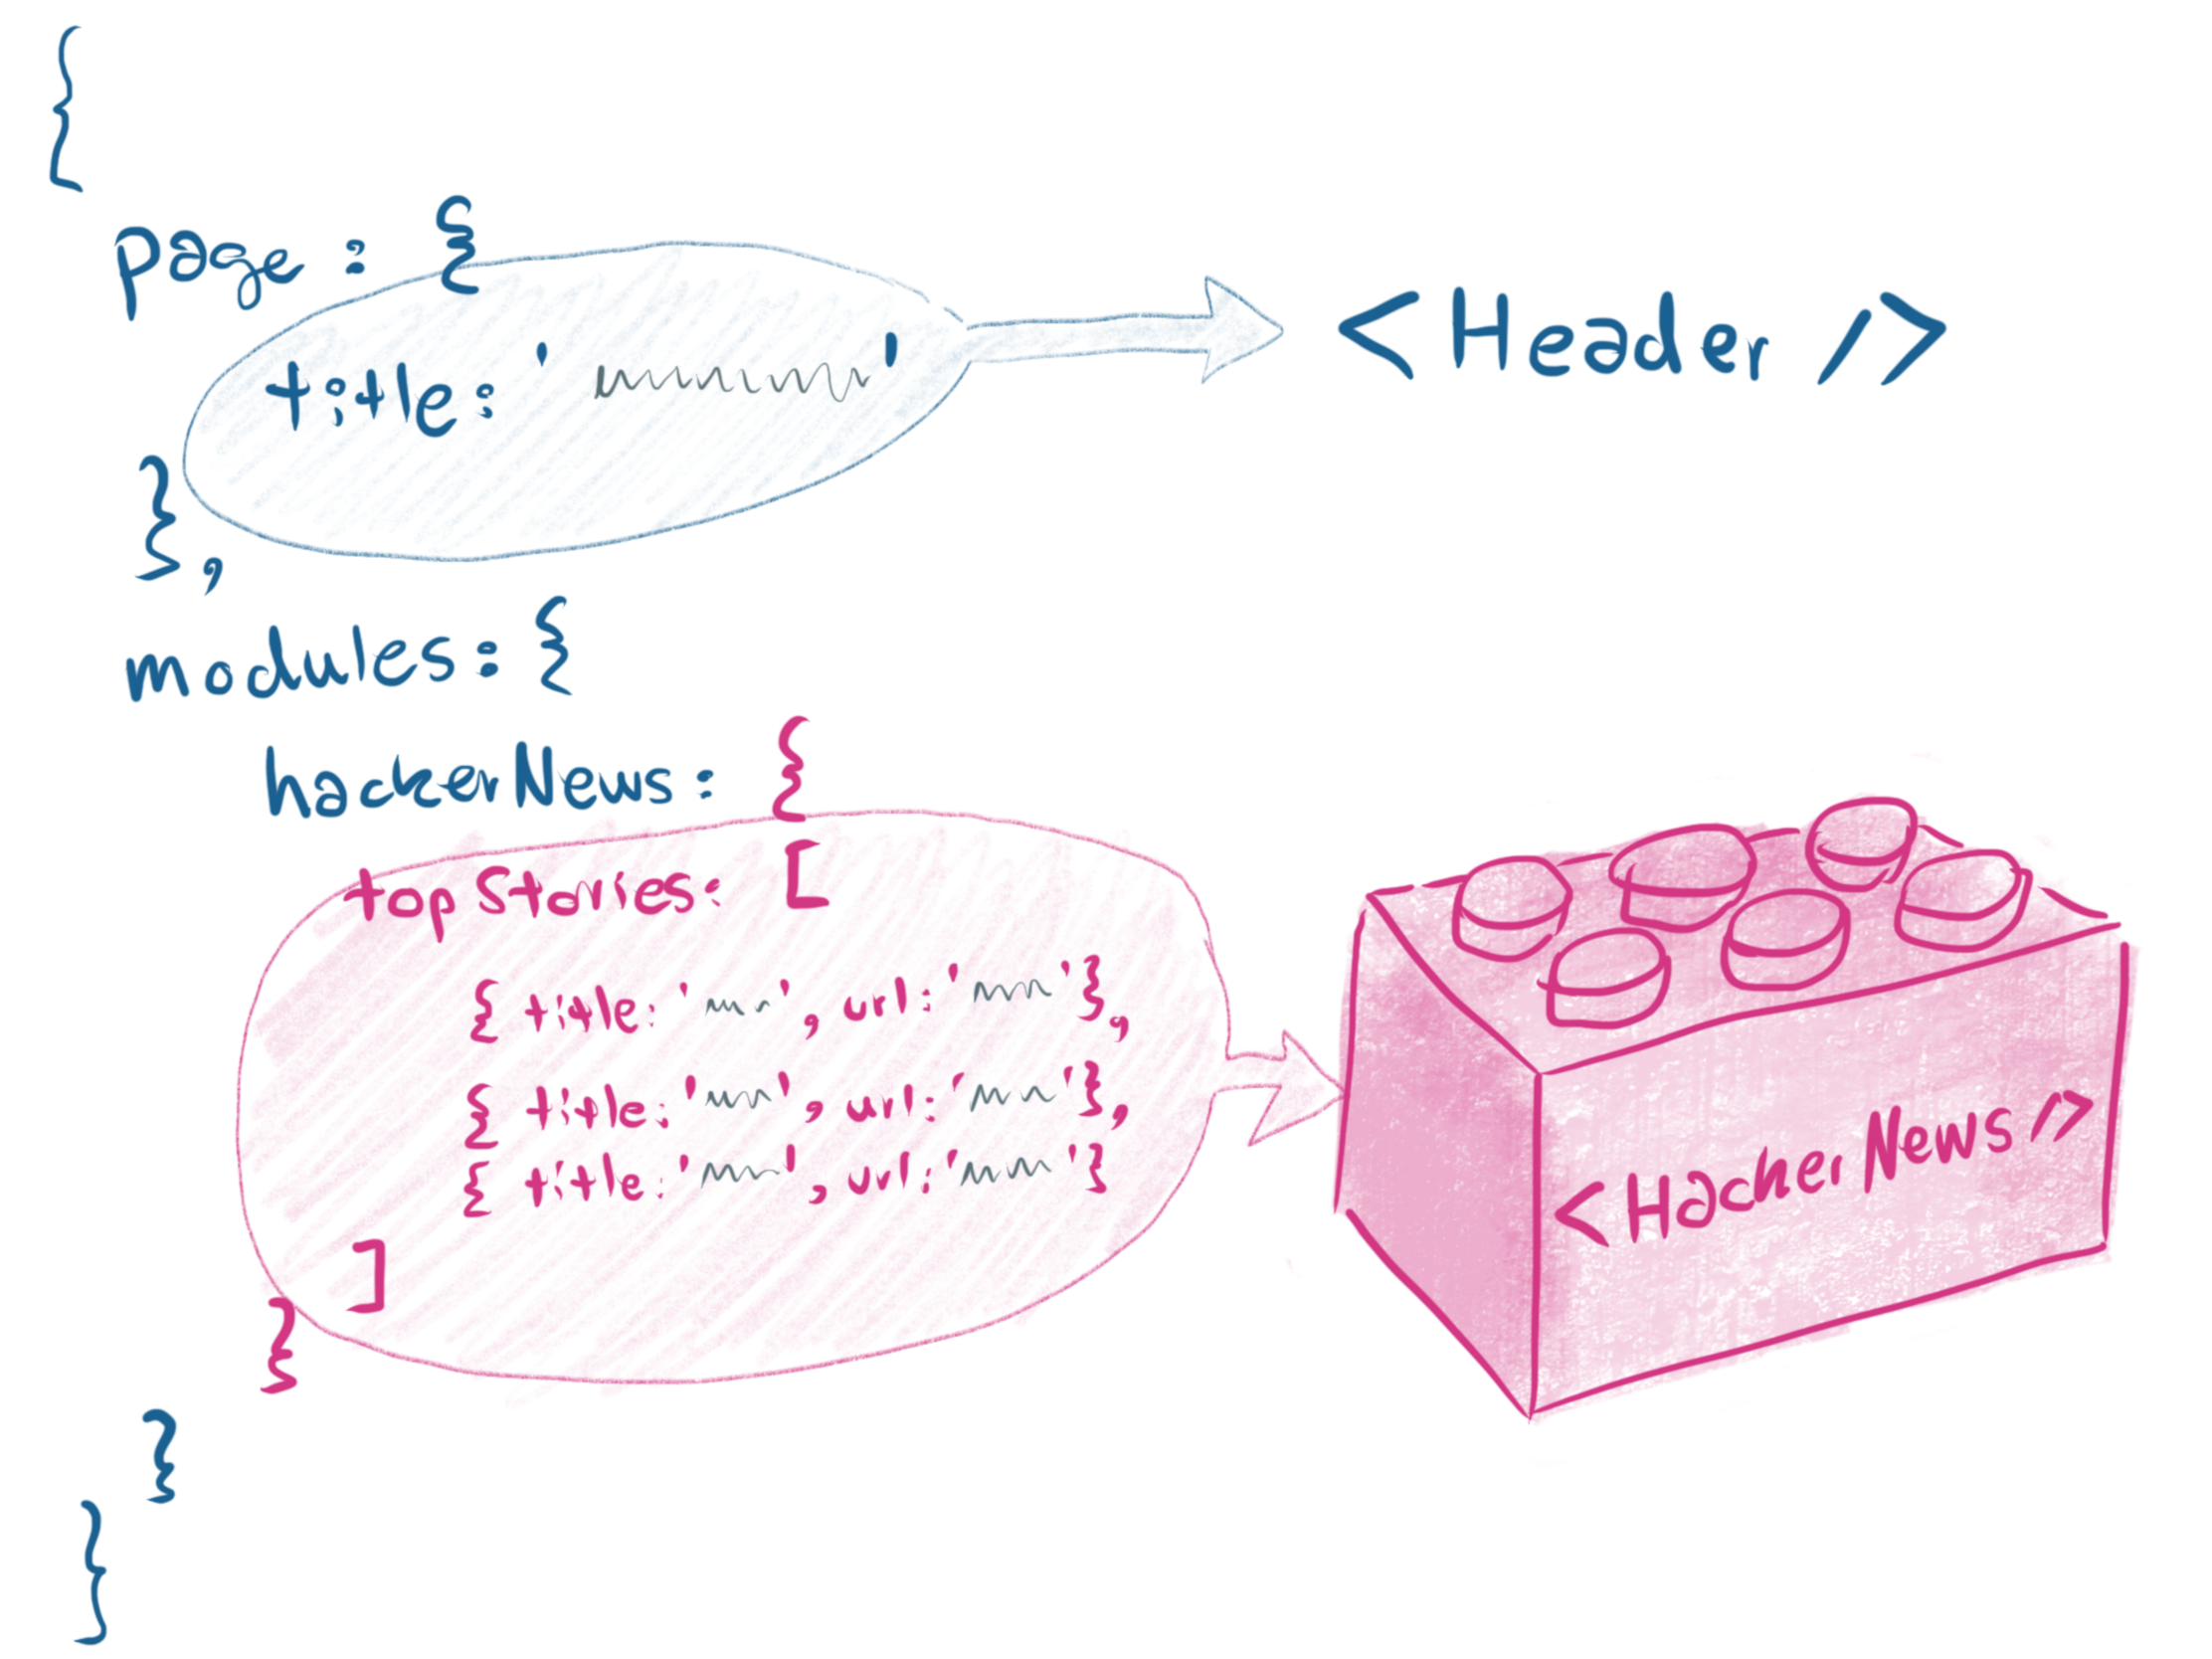 {
page: {
title: ' '
},
<Header />
modules: {
hackerNews: {
topStories: [
{ title: ' ', url: ' '},
{ title: ' ', url: ' '},
{ title: ' ', url: ' '}
]
}
}
}
<HackerNews />